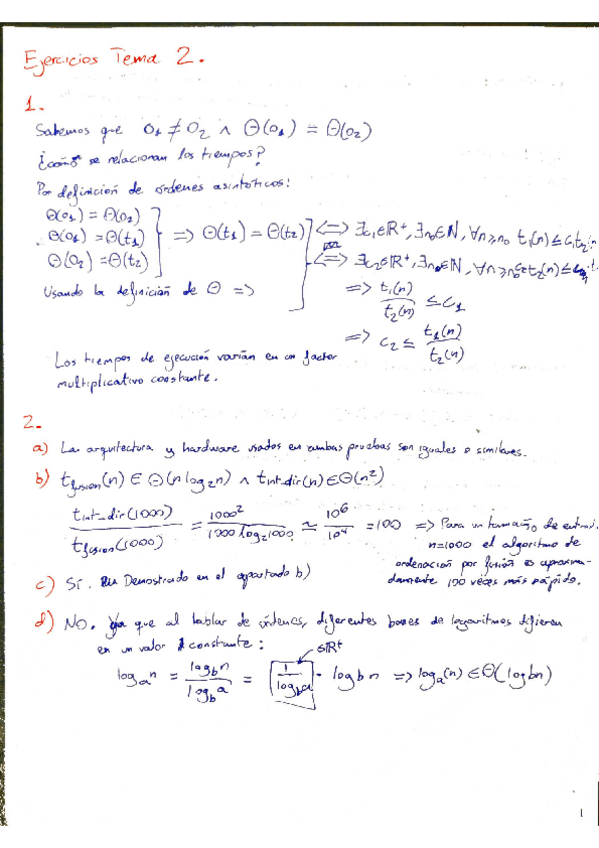 Ejercicios Tema 2.
1.
Sabemos que O₁ ≠ O₂ ∧ Θ(O₁) = Θ(O₂)
¿cómo se relacionan los tiempos?
Por definición de órdenes asintóticos:
Θ(O₁) = Θ(O₂)
Θ(O₁) = Θ(t₁) => Θ(t₁) = Θ(t₂) <=> ∃c₁∈ℝ⁺, ∃n₀∈ℕ, ∀n≥n₀ t₁(n) ≤ c₁t₂(n)
Θ(O₂) = Θ(t₂) <=> ∃c₂∈ℝ⁺, ∃n₀∈ℕ, ∀n≥n₀
Usando la definición de Θ =>
=> t₁(n) / t₂(n) ≤ c₁
=> c₂ ≤ t₁(n) / t₂(n)
Los tiempos de ejecución varían en un factor
multiplicativo constante.
2.
a) La arquitectura y hardware usados en ambas pruebas son iguales o similares.
b) t_fusion(n) ∈ Θ(n log₂n) ∧ t_int_dir(n) ∈ Θ(n²)
t_int_dir(1000) / t_fusion(1000) = 1000² / 1000 log₂1000 ≃ 10⁶ / 10⁴ = 100 => Para un tamaño de
n=1000 el algoritmo de
ordenación por fusión es aproxima-
damente 100 veces más rápido.
c) Sí. Demostrado en el apartado b)
d) NO. Ya que al hablar de órdenes, diferentes bases de logaritmos difieren
en un valor constante:
∈ℝ⁺
logₐn = log_b n / log_b a = 1 / log_b a · log b n => logₐ(n) ∈ Θ(log b n)
1